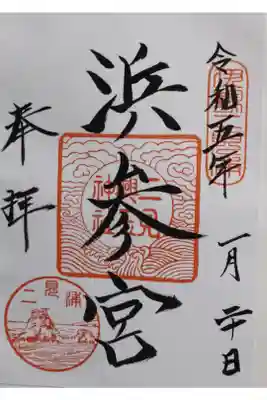 令和五年
一月二十日
浜参宮
二見
興玉
神社
奉拝
二見浦